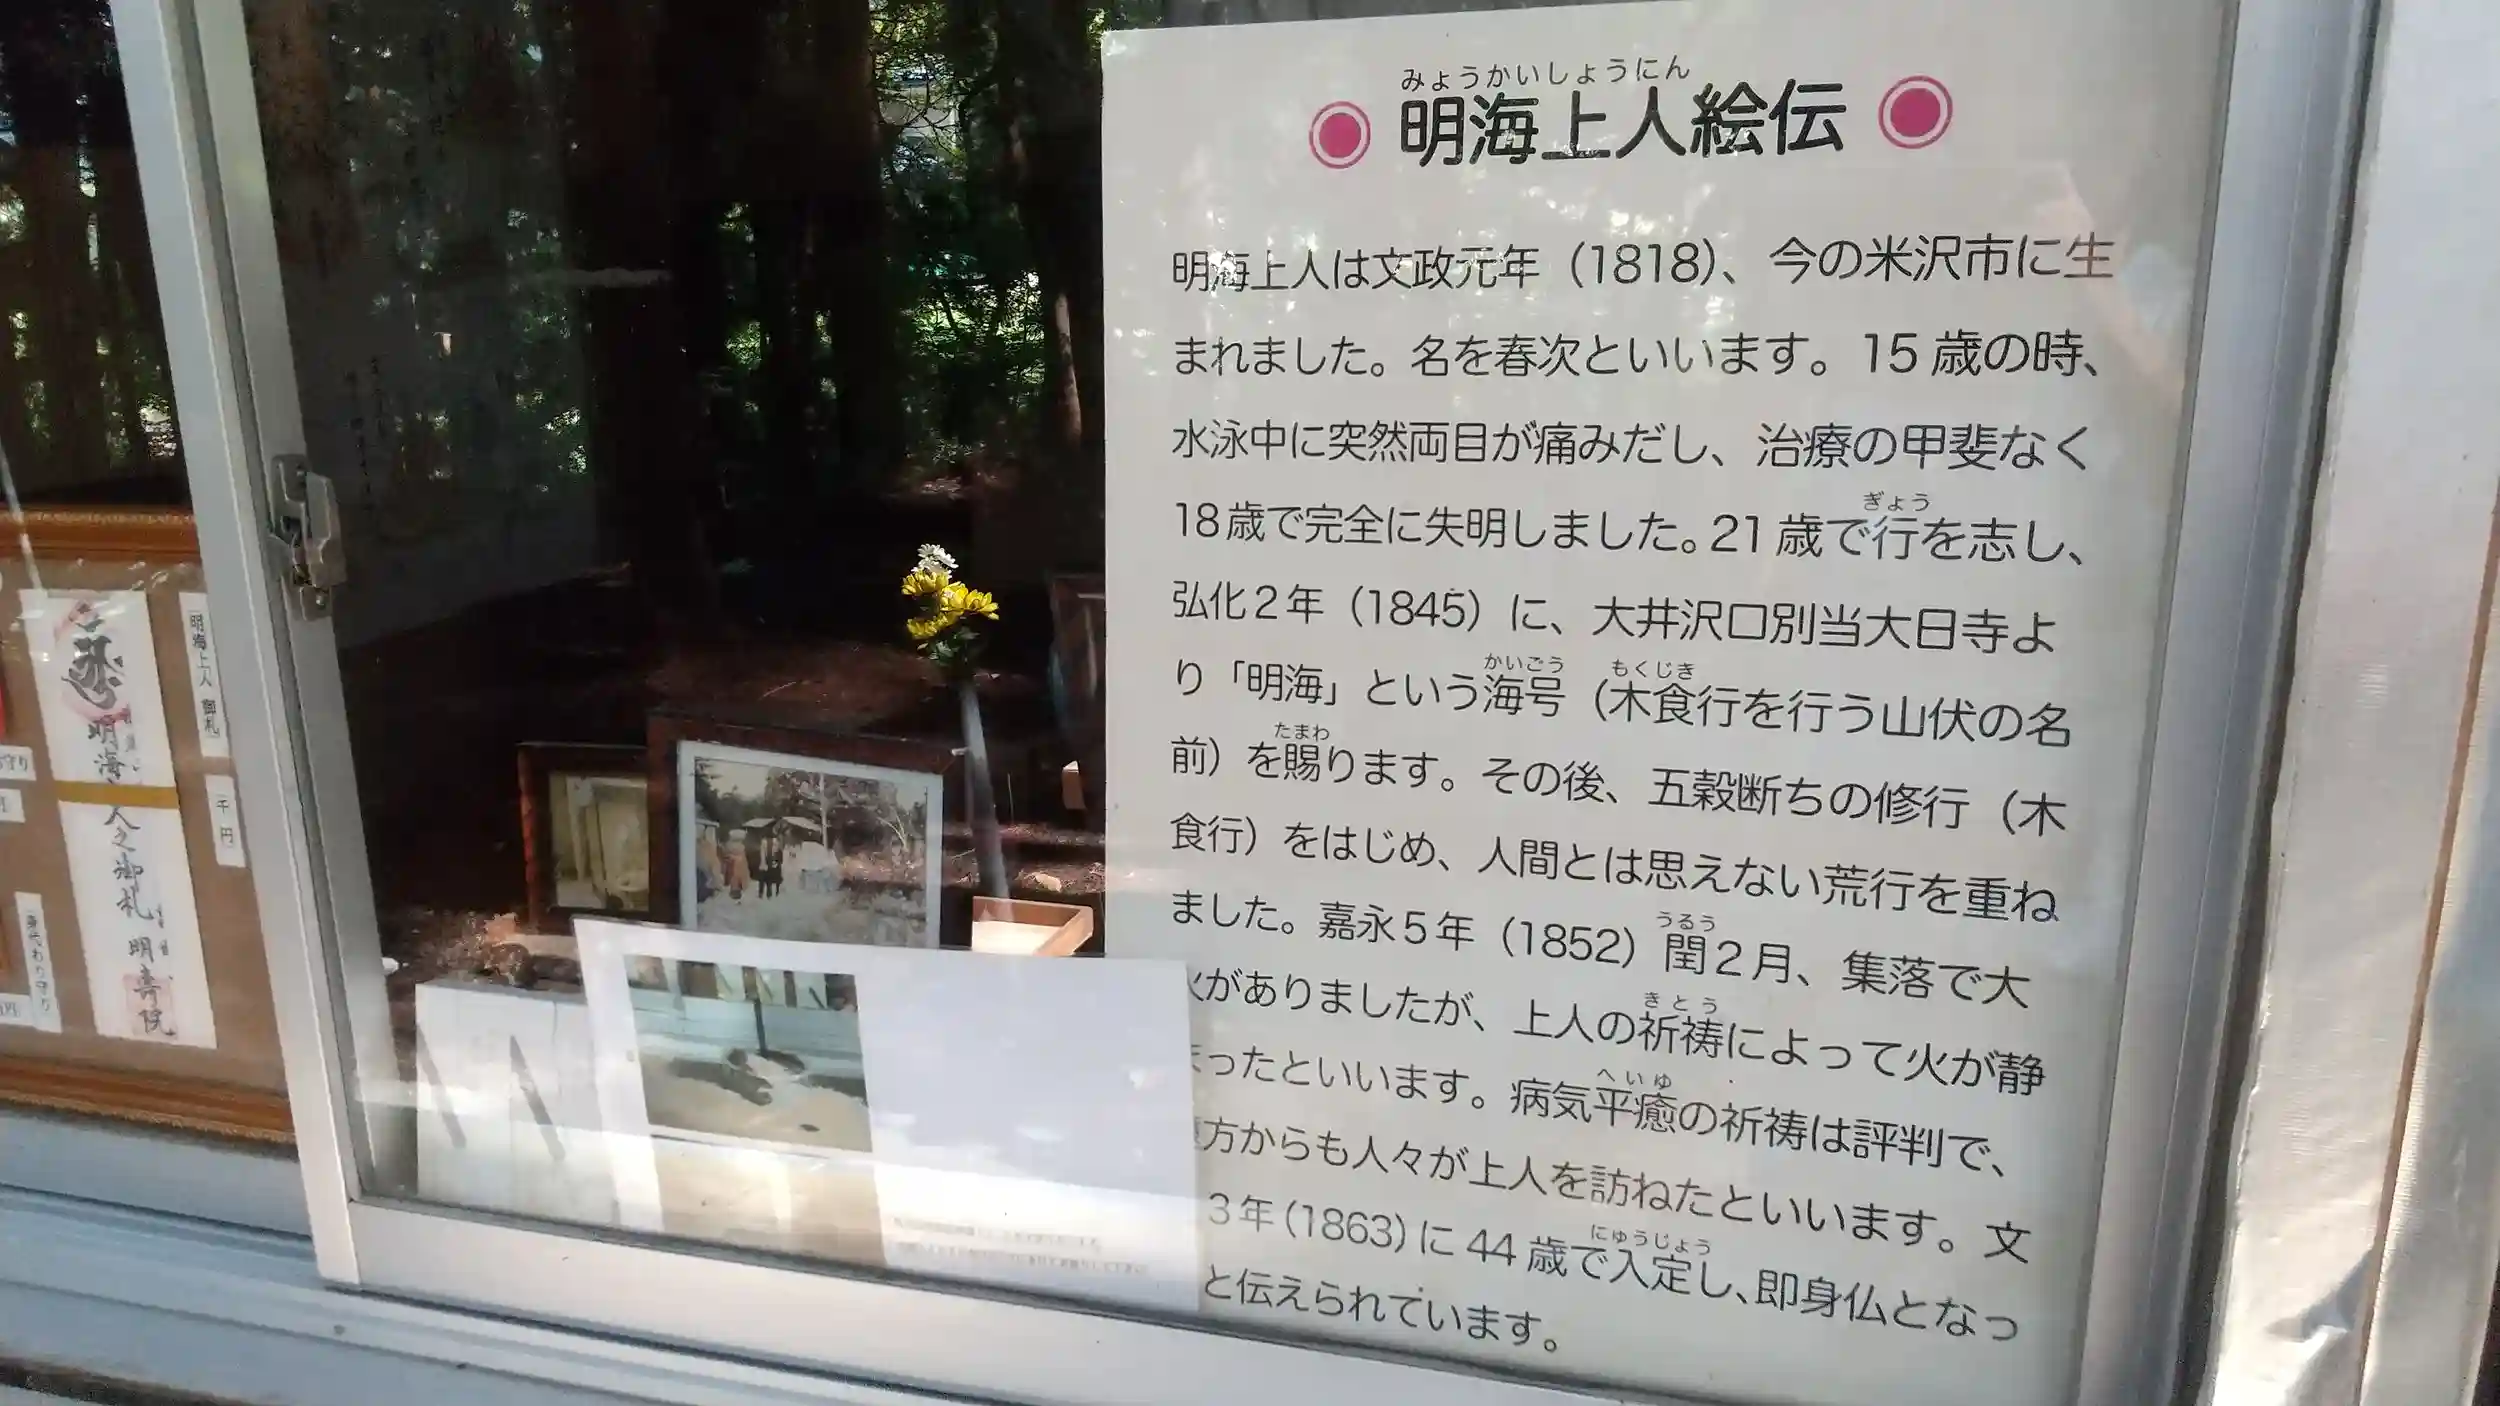 みょうかいしょうにん
明海上人絵伝
明海上人は文政元年（1818）、今の米沢市に生
まれました。名を春次といいます。15歳の時、
水泳中に突然両目が痛みだし、治療の甲斐なく
ぎょう
18歳で完全に失明しました。21歳で行を志し、
弘化2年（1845）に、大井沢口別当大日寺よ
かいごう もくじき
り「明海」という海号（木食行を行う山伏の名
たまわ
前）を賜ります。その後、五穀断ちの修行（木
食行）をはじめ、人間とは思えない荒行を重ね
うるう
ました。嘉永5年（1852）閏2月、集落で大
きとう
火がありましたが、上人の祈祷によって火が静
へいゆ
まったといいます。病気平癒の祈祷は評判で、
方からも人々が上人を訪ねたといいます。文
にゅうじょう
3年（1863）に44歳で入定し、即身仏となっ
と伝えられています。
明海上人 御札
千円
明海
人之御札 明寿院
身代わり守り
守り
円